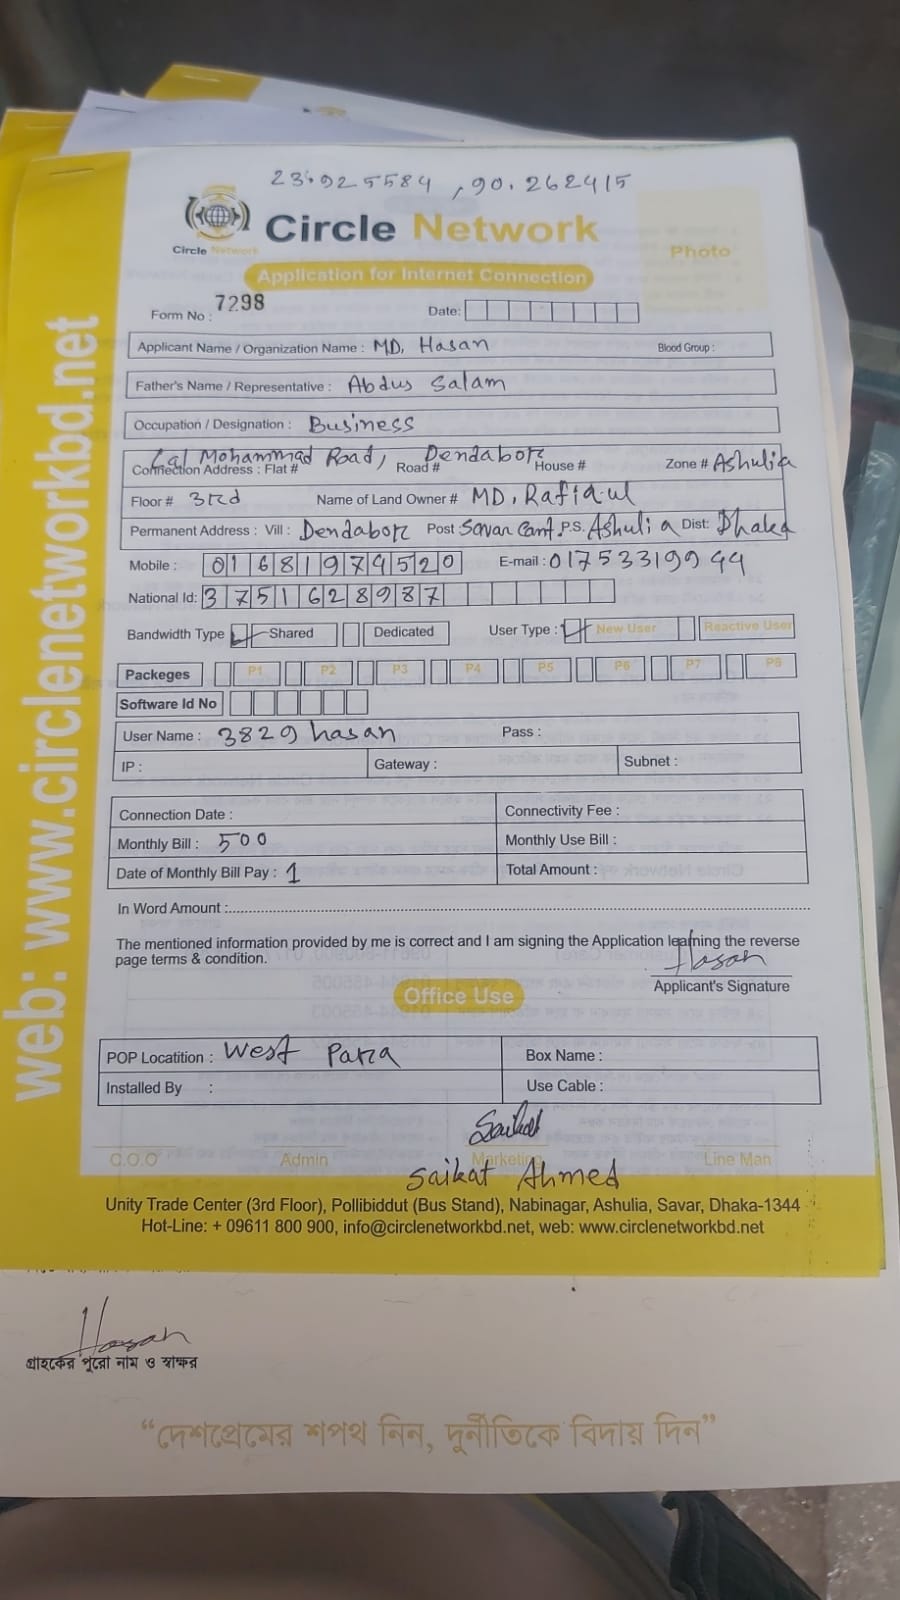 23.925584, 90.262415
Circle Network
Circle Network
Photo
Application for Internet Connection
Form No : 7298
Date:
Applicant Name / Organization Name : MD, Hasan Blood Group :
Father's Name / Representative : Abdus Salam
Occupation / Designation : Business
Lal Mohammad Road, Dendabor
Connection Address : Flat # Road # House # Zone # Ashulia
Floor # 3rd Name of Land Owner # MD, Rafiqul
Permanent Address : Vill : Dendabor Post : Savar Cant P.S. Ashulia Dist: Dhaka
Mobile : 01681974520 E-mail : 01753319944
National Id: 3751628987
Bandwidth Type Shared Dedicated User Type : New User Reactive User
Packeges P1 P2 P3 P4 P5 P6 P7 P8
Software Id No
User Name : 3829hasan Pass :
IP : Gateway : Subnet :
Connection Date : Connectivity Fee :
Monthly Bill : 500 Monthly Use Bill :
Date of Monthly Bill Pay : 1 Total Amount :
In Word Amount :
The mentioned information provided by me is correct and I am signing the Application learning the reverse
page terms & condition.
Hasan
Applicant's Signature
Office Use
POP Locatition : West Para Box Name :
Installed By : Use Cable :
Saikat
C.O.O Admin Marketing Line Man
Saikat Ahmed
Unity Trade Center (3rd Floor), Pollibiddut (Bus Stand), Nabinagar, Ashulia, Savar, Dhaka-1344
Hot-Line: + 09611 800 900, info@circlenetworkbd.net, web: www.circlenetworkbd.net
web: www.circlenetworkbd.net
Hasan
গ্রাহকের পুরো নাম ও স্বাক্ষর
“দেশপ্রেমের শপথ নিন, দুর্নীতিকে বিদায় দিন”